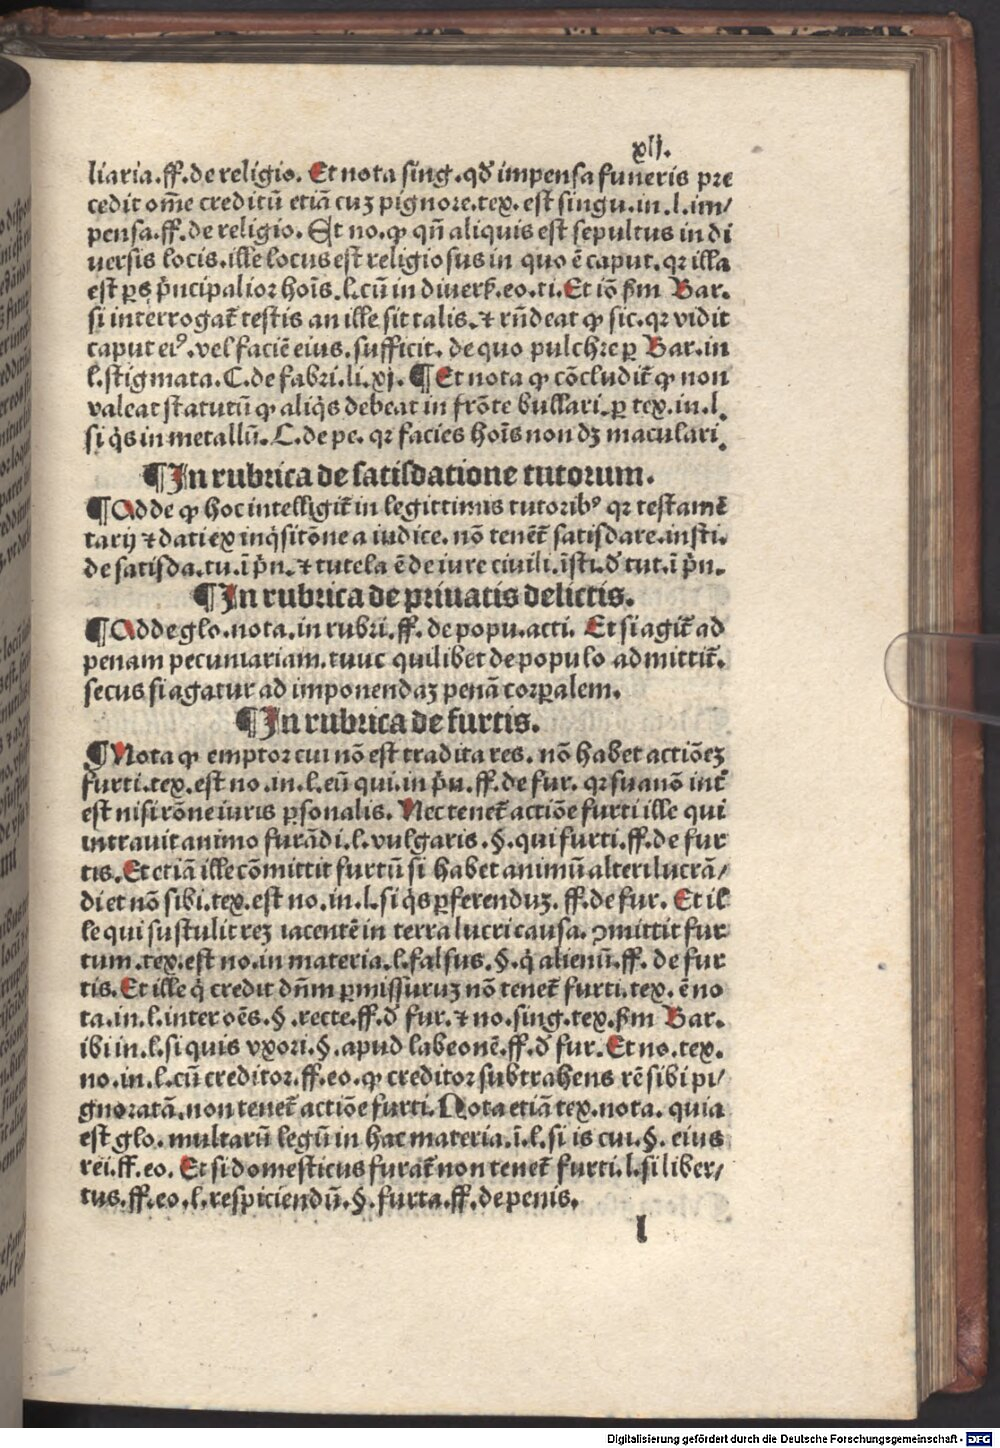 xlj.
liaria.ff.de religio. Et nota sing.qđ impensa funeris pre
cedit om̅e creditū etiā cuȝ pignore.tex. est singu.in.l.im/
pensa.ff.de religio. Et no.ꝙ qn̄ aliquis est sepultus in di
uersis locis.ille locus est religiosus in quo ē caput.qr illa
est ꝑs p̄ncipalior hoīs.l.cū in diuerẜ.eo.ti.Et iō ẜm Bar.
si interrogat̄ testis an ille sit talis.⁊ rn̄deat ꝙ sic.qr vidit
caput eiꝰ.vel faciē eius.sufficit. de quo pulchre ꝑ Bar.in
l.stigmata.C.de fabri.li.xj. ¶ Et nota ꝙ cōcludit̄ ꝙ non
valeat statutū ꝙ aliq̇s debeat in frōte bullari.ꝑ tex.in.l.
si q̇s in metallū.C.de pe. qr facies hoīs non dȝ maculari.
¶In rubrica de satisdatione tutorum.
¶Adde ꝙ hoc intelligit̄ in legittimis tutoribꝰ qr testamē
tarij ⁊ dati ex inq̇sitōne a iudice.nō tenēt̄ satisdare.insti.
de satisda.tu.ī p̄n.⁊ tutela ē de iure ciuili.īsti.đ tut.ī p̄n.
¶In rubrica de priuatis delictis.
¶Adde glo.nota.in rubri.ff.de popu.acti. Et si agit̄ ad
penam pecuniariam.tuuc quilibet de populo admittit̄.
secus si agatur ad imponendaȝ penā corꝑalem.
¶In rubrica de furtis.
¶Nota ꝙ emptor cui nō est tradita res. nō habet actiōeȝ
furti.tex.est no.in.l.eū qui.in p̄n.ff.de fur. qr sua nō int̄
est nisi rōne iuris ꝑsonalis. Nec tenet̄ actiōe furti ille qui
intrauit animo furādi.l.vulgaris.§.qui furti.ff.de fur
tis.Et etiā ille cōmittit furtū si habet animū alteri lucrā/
di et nō sibi.tex.est no.in.l.si q̇s ꝑferenduȝ. ff.de fur. Et il
le qui sustulit reȝ iacentē in terra lucri causa. ꝯmittit fur
tum.tex.est no.in materia.l.falsus.§.q̇ alienū.ff. de fur
tis.Et ille q̇ credit dn̄m ꝑmissuruȝ nō tenet̄ furti.tex. ē no
ta.in.l.inter oēs.§.recte.ff.đ fur.⁊ no.sing.tex.ẜm Bar.
ibi in.l.si quis vxori.§.apud labeonē.ff.đ fur.Et no.tex.
no.in.l.cū creditor.ff.eo.ꝙ creditor subtrahens rē sibi pi/
gnoratā.non tenet̄ actiōe furti.Nota etiā tex.nota. quia
est glo. multarū legū in hac materia.ī.l.si is cui.§. eius
rei.ff.eo. Et si domesticus furat̄ non tenet̄ furti.l.si liber/
tus.ff.eo.l.respiciendū.§.furta.ff.de penis.
l
Digitalisierung gefördert durch die Deutsche Forschungsgemeinschaft - DFG